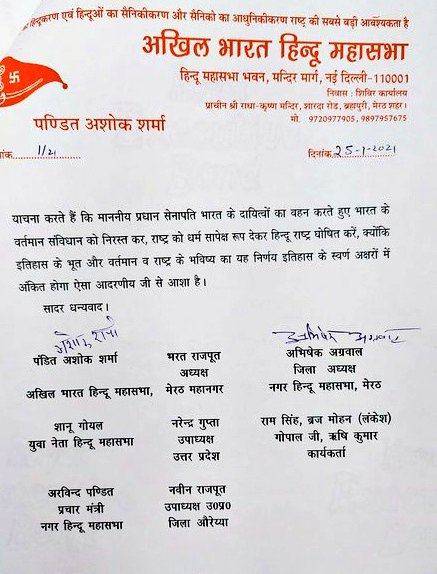 हिन्दूकरण एवं हिन्दुओं का सैनिकीकरण और सैनिको का आधुनिकीकरण राष्ट्र की सबसे बड़ी आवश्यकता है
अखिल भारत हिन्दू महासभा
हिन्दू महासभा भवन, मन्दिर मार्ग, नई दिल्ली-110001
निवास : शिविर कार्यालय
प्राचीन श्री राधा-कृष्ण मन्दिर, शारदा रोड, ब्रहापुरी, मेरठ शहर।
मो. 9720977905, 9897957675
पण्डित अशोक शर्मा
1/21
दिनांक 25-1-2021
याचना करते हैं कि माननीय प्रधान सेनापति भारत के दायित्वों का वहन करते हुए भारत के
वर्तमान संविधान को निरस्त कर, राष्ट्र को धर्म सापेक्ष रूप देकर हिन्दू राष्ट्र घोषित करें, क्योंकि
इतिहास के भूत और वर्तमान व राष्ट्र के भविष्य का यह निर्णय इतिहास के स्वर्ण अक्षरों में
अंकित होगा ऐसा आदरणीय जी से आशा है।
सादर धन्यवाद।
अशोक शर्मा
अभिषेक अग्रवाल
पंडित अशोक शर्मा भरत राजपूत अभिषेक अग्रवाल
अध्यक्ष जिला अध्यक्ष
अखिल भारत हिन्दू महासभा, मेरठ महानगर नगर हिन्दू महासभा, मेरठ
शानू गोयल नरेन्द्र गुप्ता राम सिंह, ब्रज मोहन (लंकेश)
युवा नेता हिन्दू महासभा उपाध्यक्ष गोपाल जी, ऋषि कुमार
उत्तर प्रदेश कार्यकर्ता
अरविन्द पण्डित नवीन राजपूत
प्रचार मंत्री उपाध्यक्ष उ0प्र0
नगर हिन्दू महासभा जिला औरैय्या